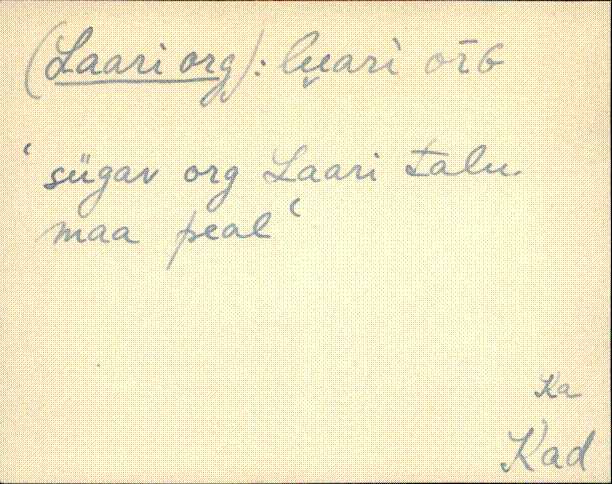 (Laari org): lu̯ari
‘sügav org Laari talu-
maa peal‘
Ka
Kad